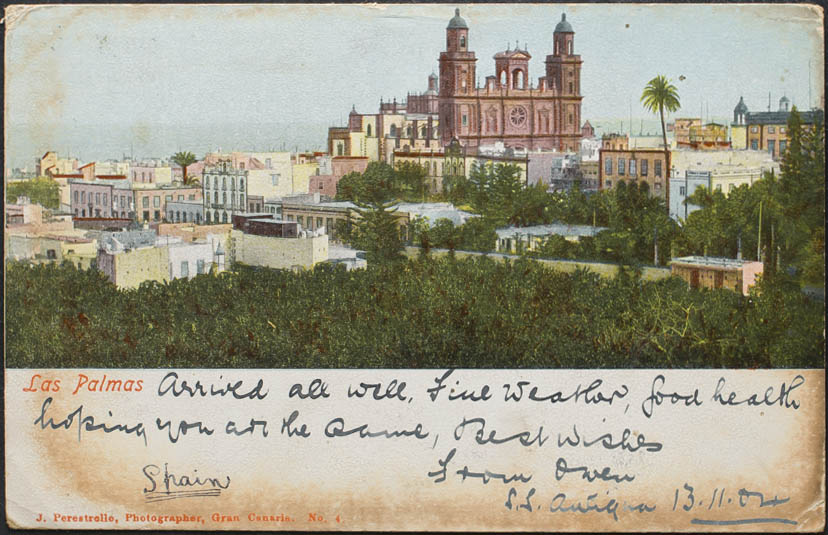 Las Palmas Arrived all well. Fine Weather, good health
hoping you are the same, Best Wishes
From Owen
Spain
S.S. Antigua 13.11.04
J. Perestrello, Photographer, Gran Canaria. No. 4